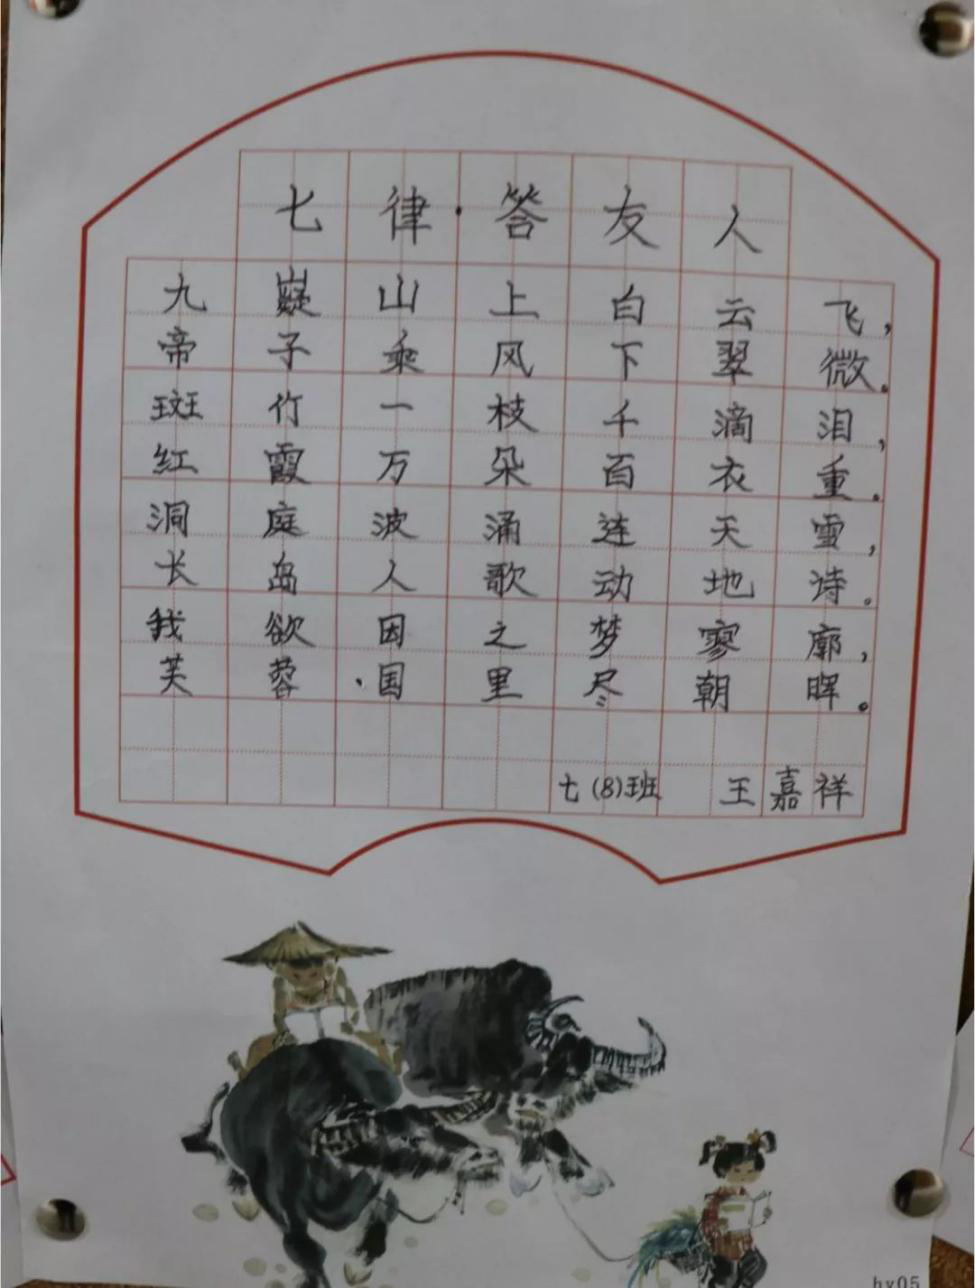 七律·答友人
九嶷山上白云飞,
帝子乘风下翠微。
斑竹一枝千滴泪,
红霞万朵百衣重。
洞庭波涌连天雪,
长岛人歌动地诗。
我欲因之梦寥廓,
芙蓉国里尽朝晖。
七(8)班 王嘉祥
hy05